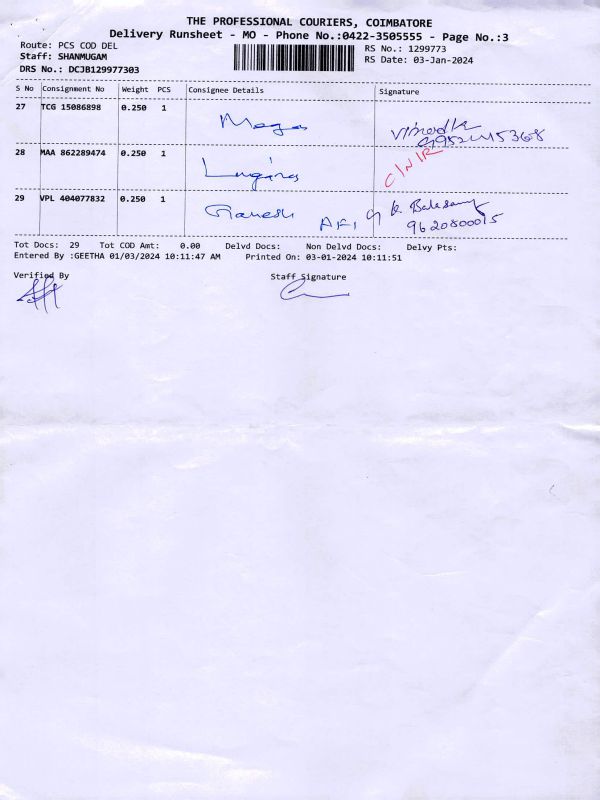 THE PROFESSIONAL COURIERS, COIMBATORE
Delivery Runsheet - MO - Phone No.:0422-3505555 - Page No.:3
Route: PCS COD DEL
RS No.: 1299773
Staff: SHANMUGAM
RS Date: 03-Jan-2024
DRS No.: DCJB129977303
S No Consignment No Weight PCS Consignee Details Signature
27 TCG 15086898 0.250 1
28 MAA 862289474 0.250 1
29 VPL 404077832 0.250 1 Ganesh
9620800015
Tot Docs: 29 Tot COD Amt: 0.00 Delvd Docs: Non Delvd Docs: Delvy Pts:
Entered By :GEETHA 01/03/2024 10:11:47 AM Printed On: 03-01-2024 10:11:51
Verified By Staff Signature